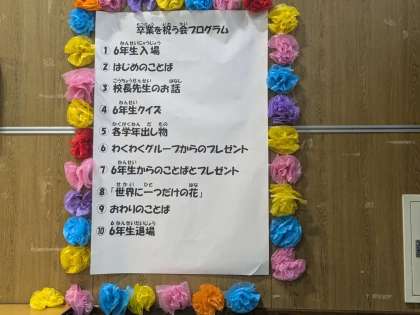 卒業を祝う会プログラム
① 6年生入場
② はじめのことば
③ 校長先生のお話
④ 6年生クイズ
⑤ 各学年出し物
⑥ わくわくグループからのプレゼント
⑦ 6年生からのことばとプレゼント
⑧ 「世界に一つだけの花」
⑨ おわりのことば
⑩ 6年生退場